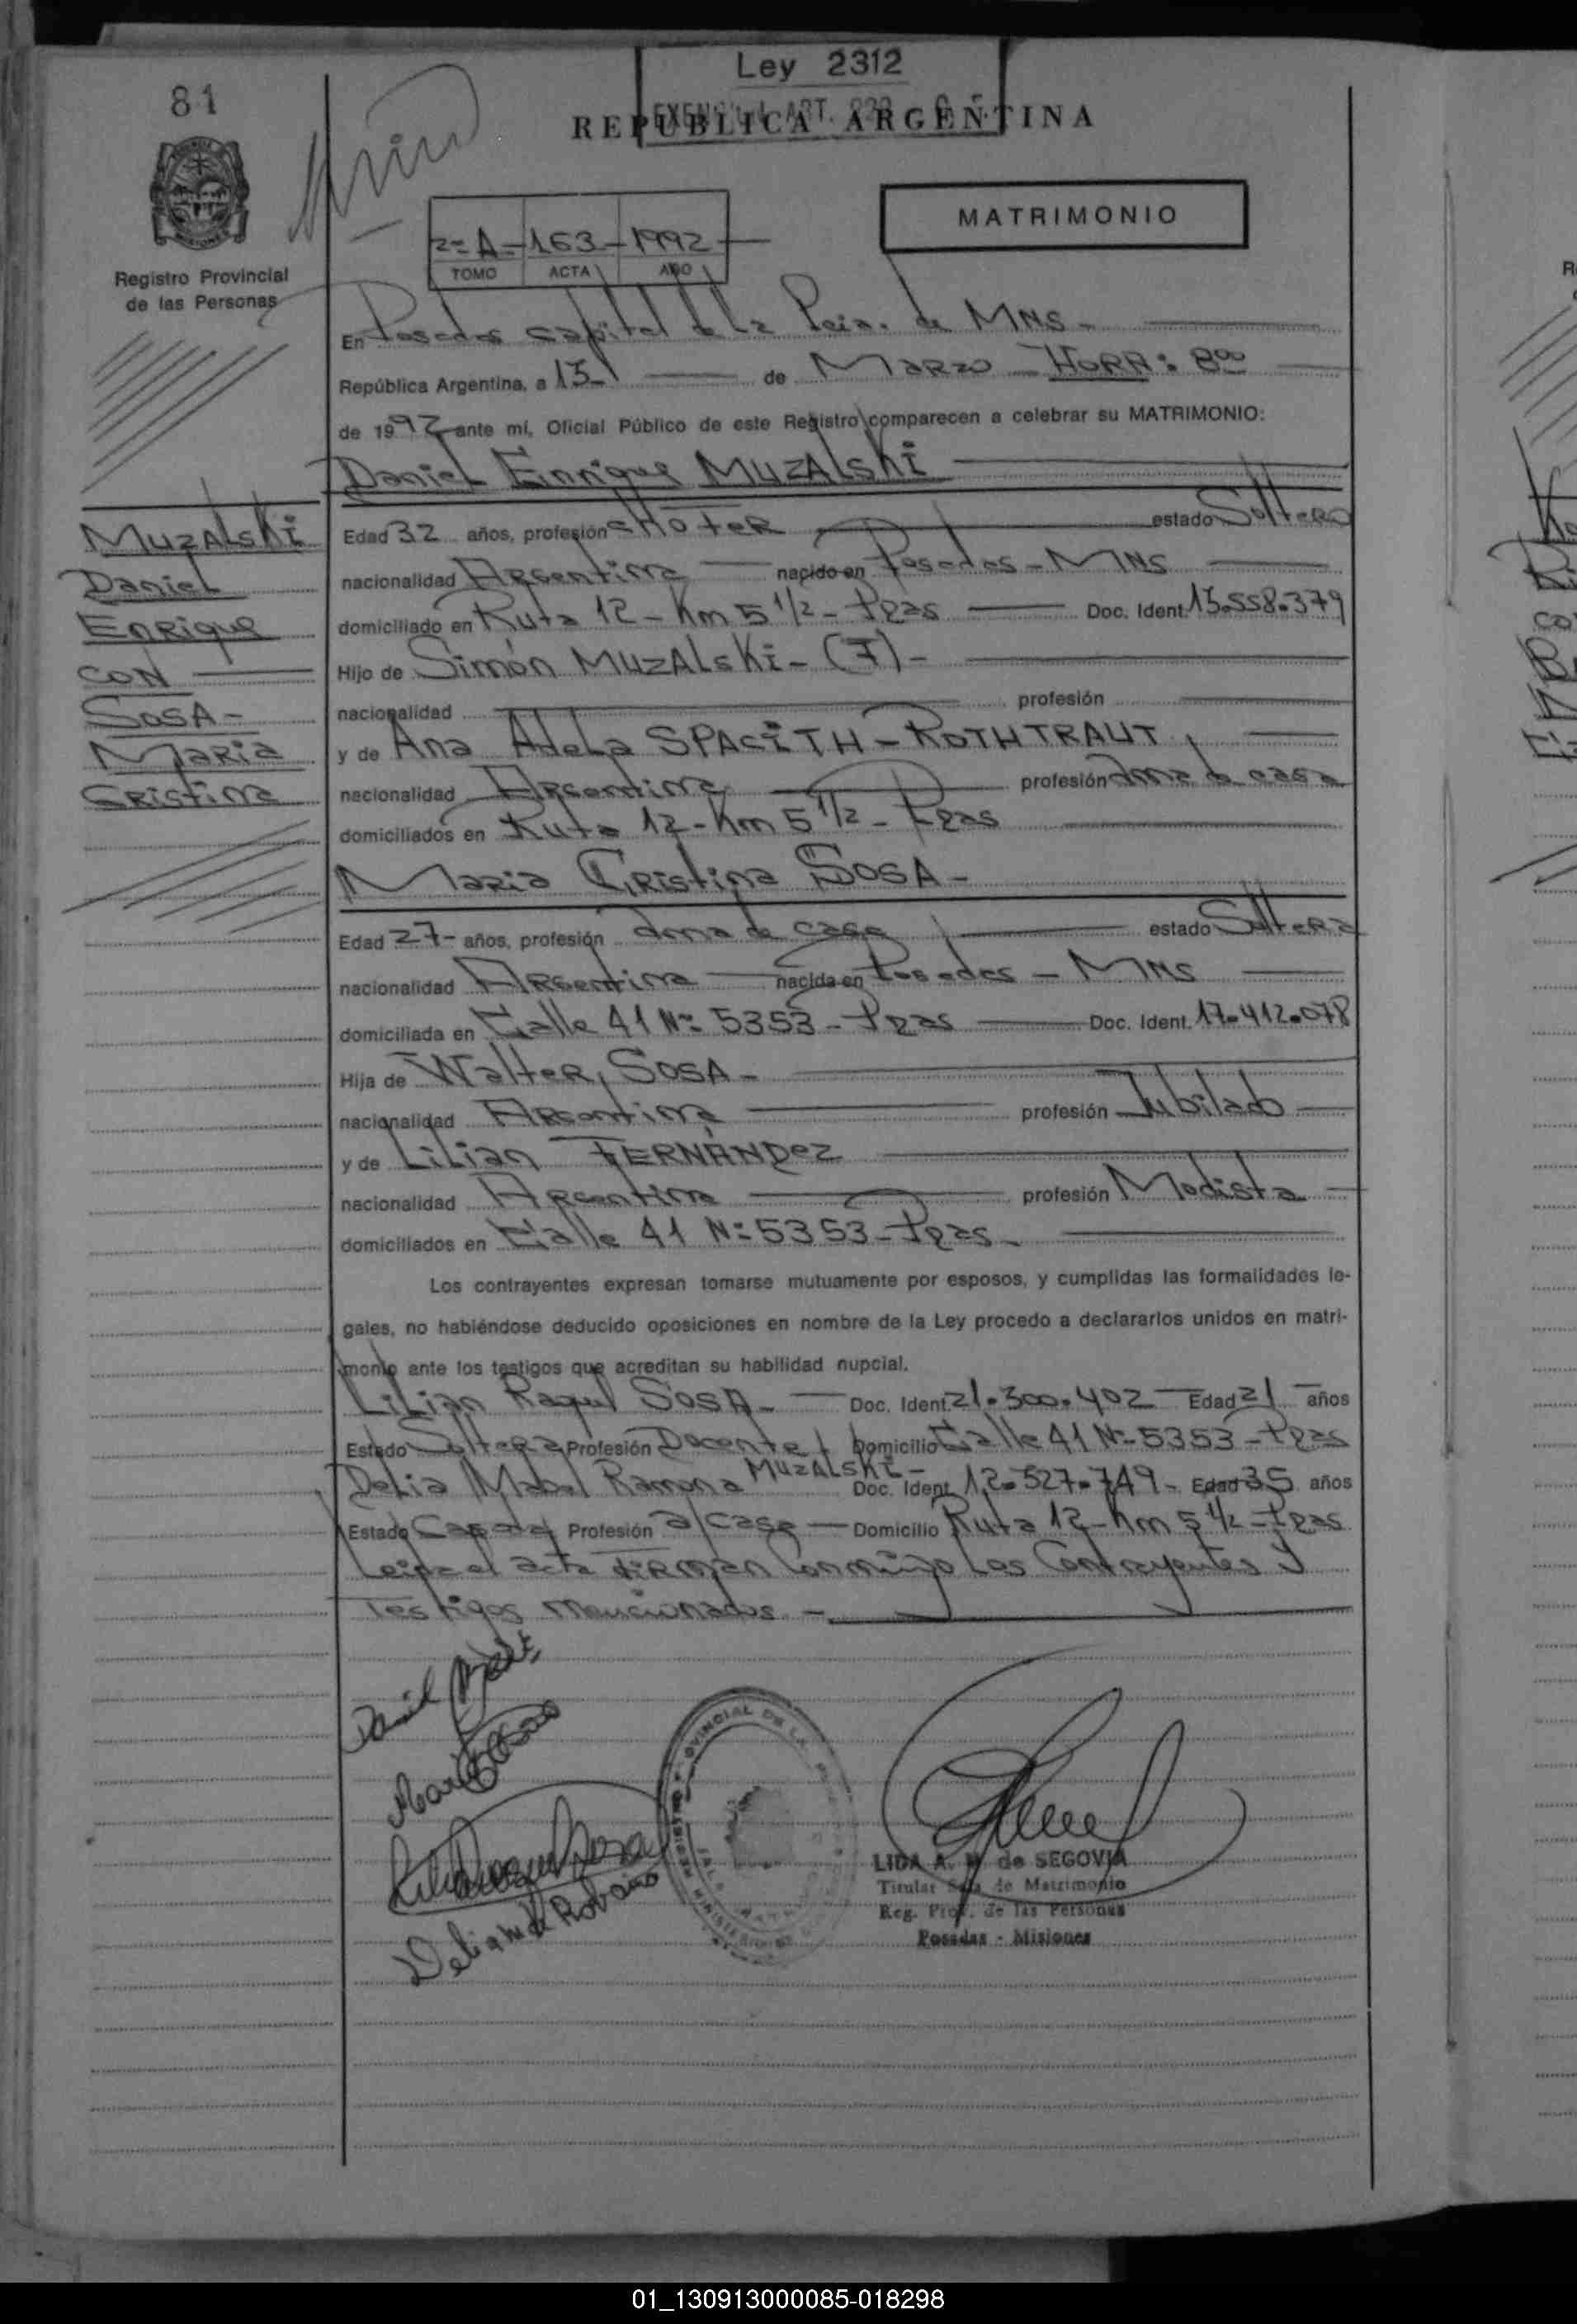 Ley 2312
81
REPUBLICA ARGENTINA
MATRIMONIO
2= A - 163 - 1992
TOMO ACTA AÑO
Registro Provincial
de las Personas
En Posadas capital de la Pcia. de MNS -
República Argentina, a 13 de Marzo HORA: 8°°
de 1992 ante mí, Oficial Público de este Registro comparecen a celebrar su MATRIMONIO:
Daniel Enrique MUZALSKI
MUZALSKI
Daniel
Enrique
CON
SOSA -
Maria
Cristina
Edad 32 años, profesión CHOFER estado Soltero
nacionalidad Argentina nacido en Posadas - MNS
domiciliado en Ruta 12 - Km 5 1/2 - Pdas Doc. Ident. 13.558.379
Hijo de Simón MUZALSKI - (F) -
nacionalidad profesión
y de Ana Adela SPACITH - ROTHTRAUT
nacionalidad Argentina profesión ama de casa
domiciliados en Ruta 12 - Km 5 1/2 - Pdas
Maria Cristina SOSA -
Edad 27 - años, profesión ama de casa estado Soltera
nacionalidad Argentina nacida en Posadas - MNS
domiciliada en Calle 41 Nº 5353 - Pdas Doc. Ident. 17.412.078
Hija de Walter, SOSA -
nacionalidad Argentina profesión Jubilado
y de Lilian FERNÁNDEZ
nacionalidad Argentina profesión Modista
domiciliados en Calle 41 Nº 5353 - Pdas -
Los contrayentes expresan tomarse mutuamente por esposos, y cumplidas las formalidades le-
gales, no habiéndose deducido oposiciones en nombre de la Ley procedo a declararlos unidos en matri-
monio ante los testigos que acreditan su habilidad nupcial.
Lilian Raquel SOSA - Doc. Ident. 21.300.402 Edad 21 años
Estado Soltera Profesión Docente Domicilio Calle 41 Nº 5353 - Pdas
Delia Mabel Ramona MUZALSKI - Doc. Ident. 12.527.749 - Edad 35 años
Estado Casada Profesión a/casa Domicilio Ruta 12 - Km 5 1/2 - Pdas
Leida el acta firman conmigo los Contrayentes y
Testigos mencionados -
LIDA A. de SEGOVIA
Titular Sala de Matrimonio
Reg. Prov. de las Personas
Posadas - Misiones
01_130913000085-018298